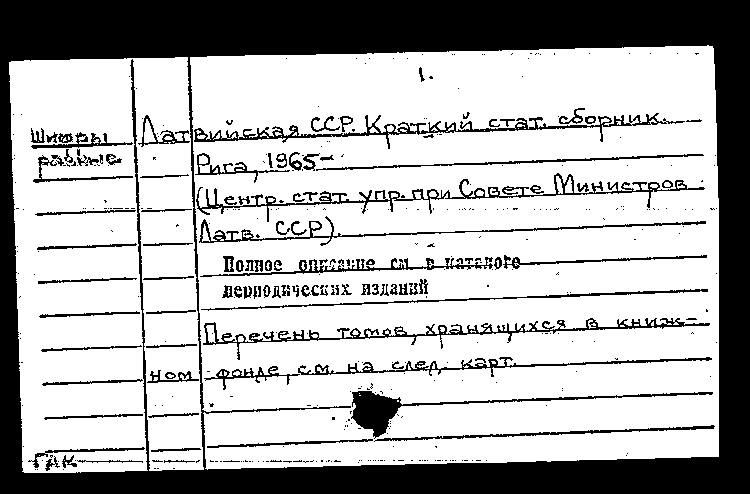 1.
Шифры Латвийская ССР. Краткий стат. сборник.
разные. Рига, 1965-
(Центр. стат. упр. при Совете Министров
Латв. ССР).
Полное описание см. в каталоге
периодических изданий
Перечень томов, хранящихся в книж-
ном фонде, см. на след. карт.
ГАК